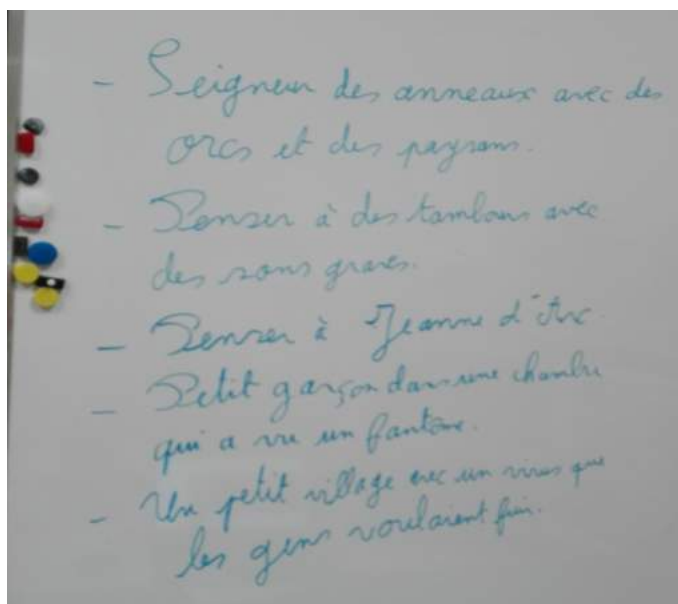 - Seigneur des anneaux avec des
orcs et des paysans.
- Penser à des tambours avec
des sons graves.
- Penser à Jeanne d'Arc.
- Petit garçon dans une chambre
qui a vu un fantôme.
- Un petit village avec un virus que
les gens voulaient fuir.